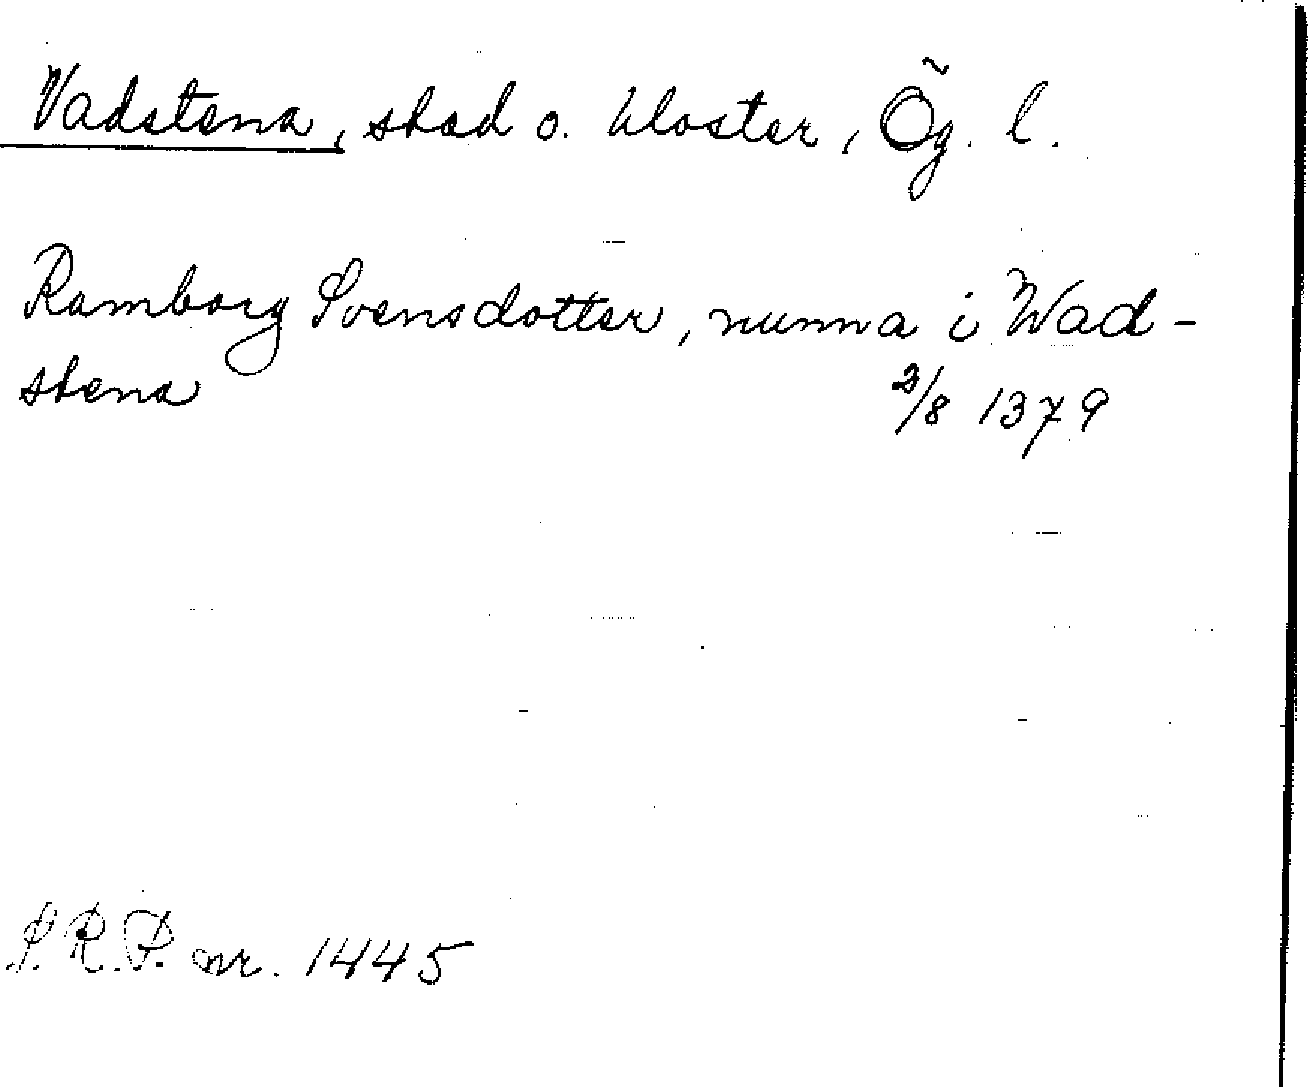 Vadstena, stad o. kloster, Ög. l.
Ramborg Svensdotter, nunna i Wad-
stena 3/8 1379
S.R.P. nr. 1445